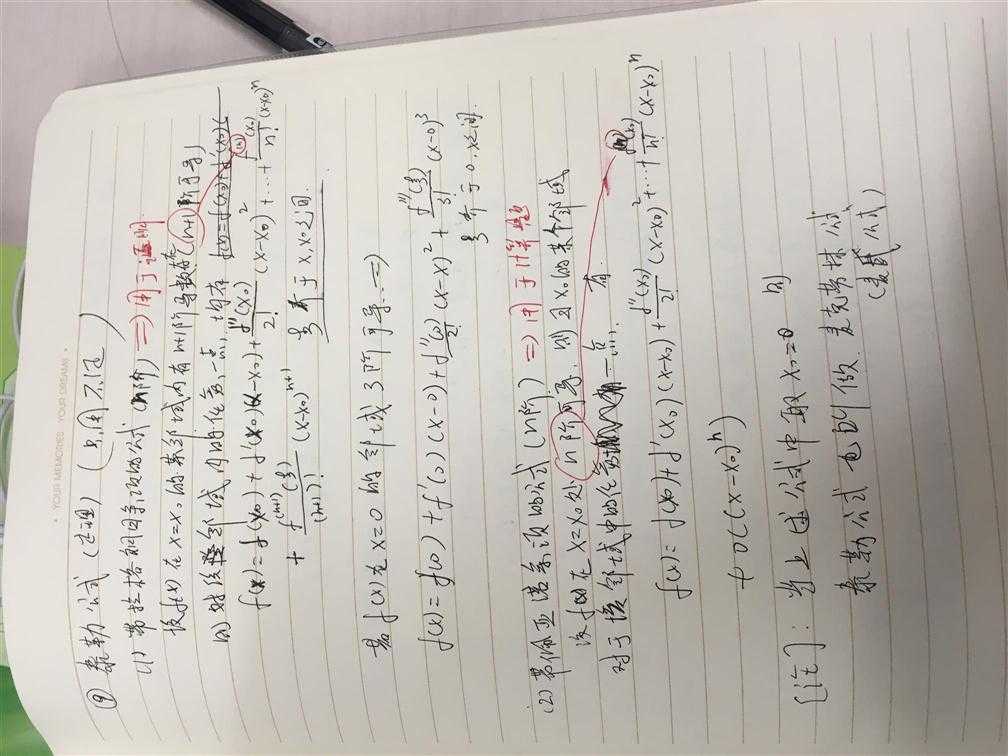 YOUR MEMORIES YOUR DREAMS
⑨ 泰勒公式 (定理) (只用不证)
(1) 带拉格朗日余项的公式 (n阶) ⇒ 用于证明
设f(x)在x=x₀的某邻域内有n+1阶导数 (n+1阶可导)
则对该邻域内的任意一点, 均有
f(x)=f(x₀)+f'(x₀)(x-x₀)+f''(x₀)/2! (x-x₀)²+…+f⁽ⁿ⁾(x₀)/n! (x-x₀)ⁿ
+ f⁽ⁿ⁺¹⁾(ξ)/(n+1)! (x-x₀)ⁿ⁺¹ ξ介于x,x₀之间
若f(x)在x=0的邻域3阶可导…
f(x)=f(0)+f'(0)(x-0)+f''(0)/2! (x-x)²+f'''(ξ)/3! (x-0)³
ξ介于0,x之间
(2) 带佩亚诺余项的公式 (n阶) ⇒ 用于计算题
设f(x)在x=x₀处n阶可导, 则∃x₀的某个邻域
对于该邻域中的任意一点, 有
f(x)=f(x₀)+f'(x₀)(x-x₀)+f''(x₀)/2! (x-x₀)²+…+f⁽ⁿ⁾(x₀)/n! (x-x₀)ⁿ
+o((x-x₀)ⁿ)
[注]: 当上述公式中取x₀=0时
泰勒公式也叫做 麦克劳林公式